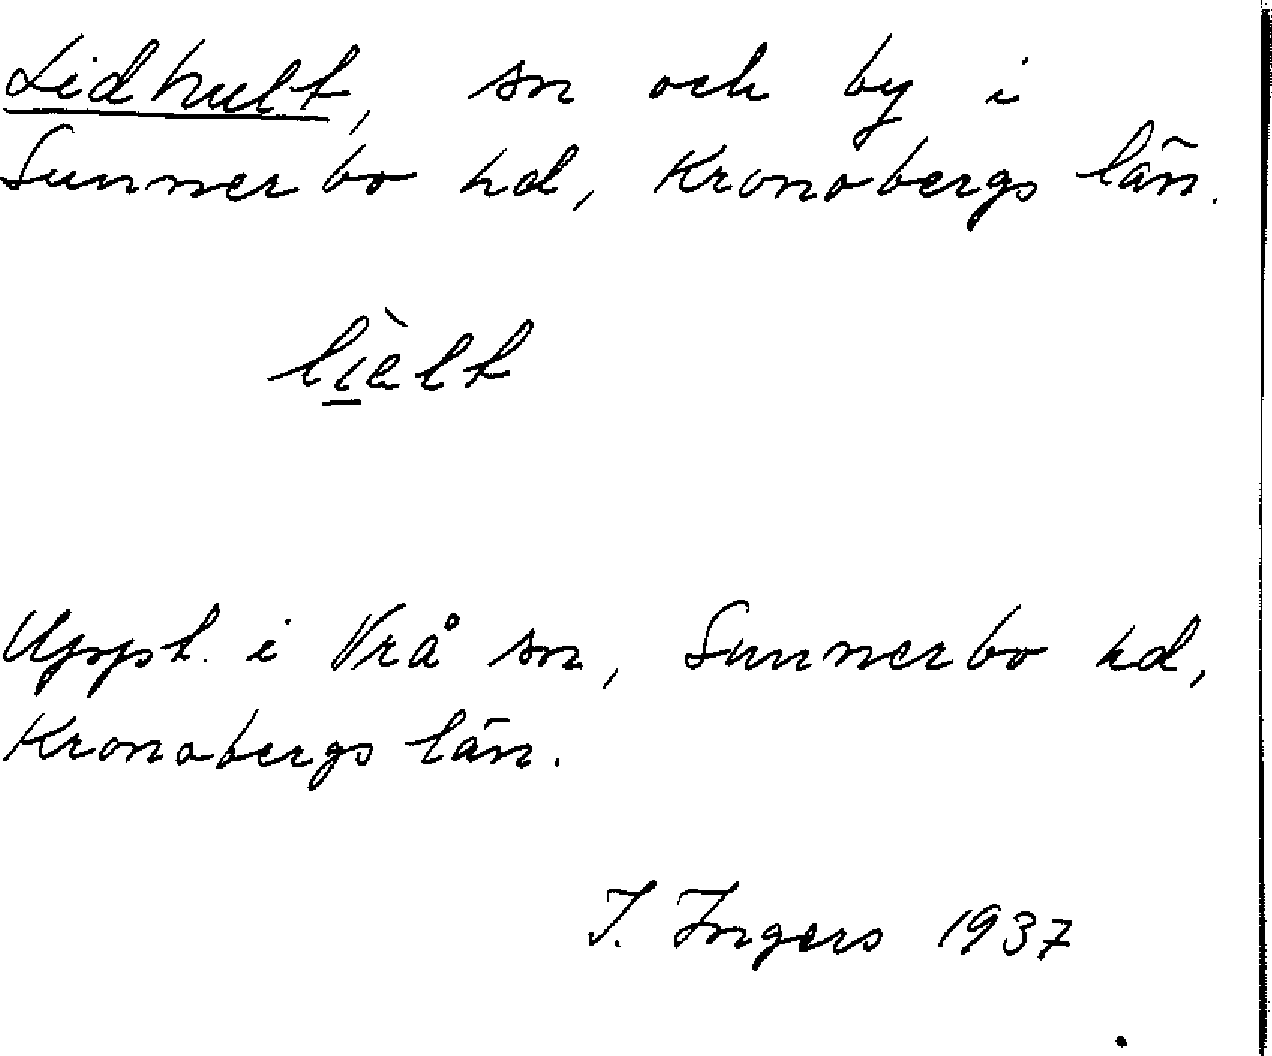 Lidhult, sn och by i
Sunnerbo hd, Kronobergs län.
lìe̠lt
Uppt. i Vrå sn, Sunnerbo hd,
Kronobergs län.
I. Ingers 1937